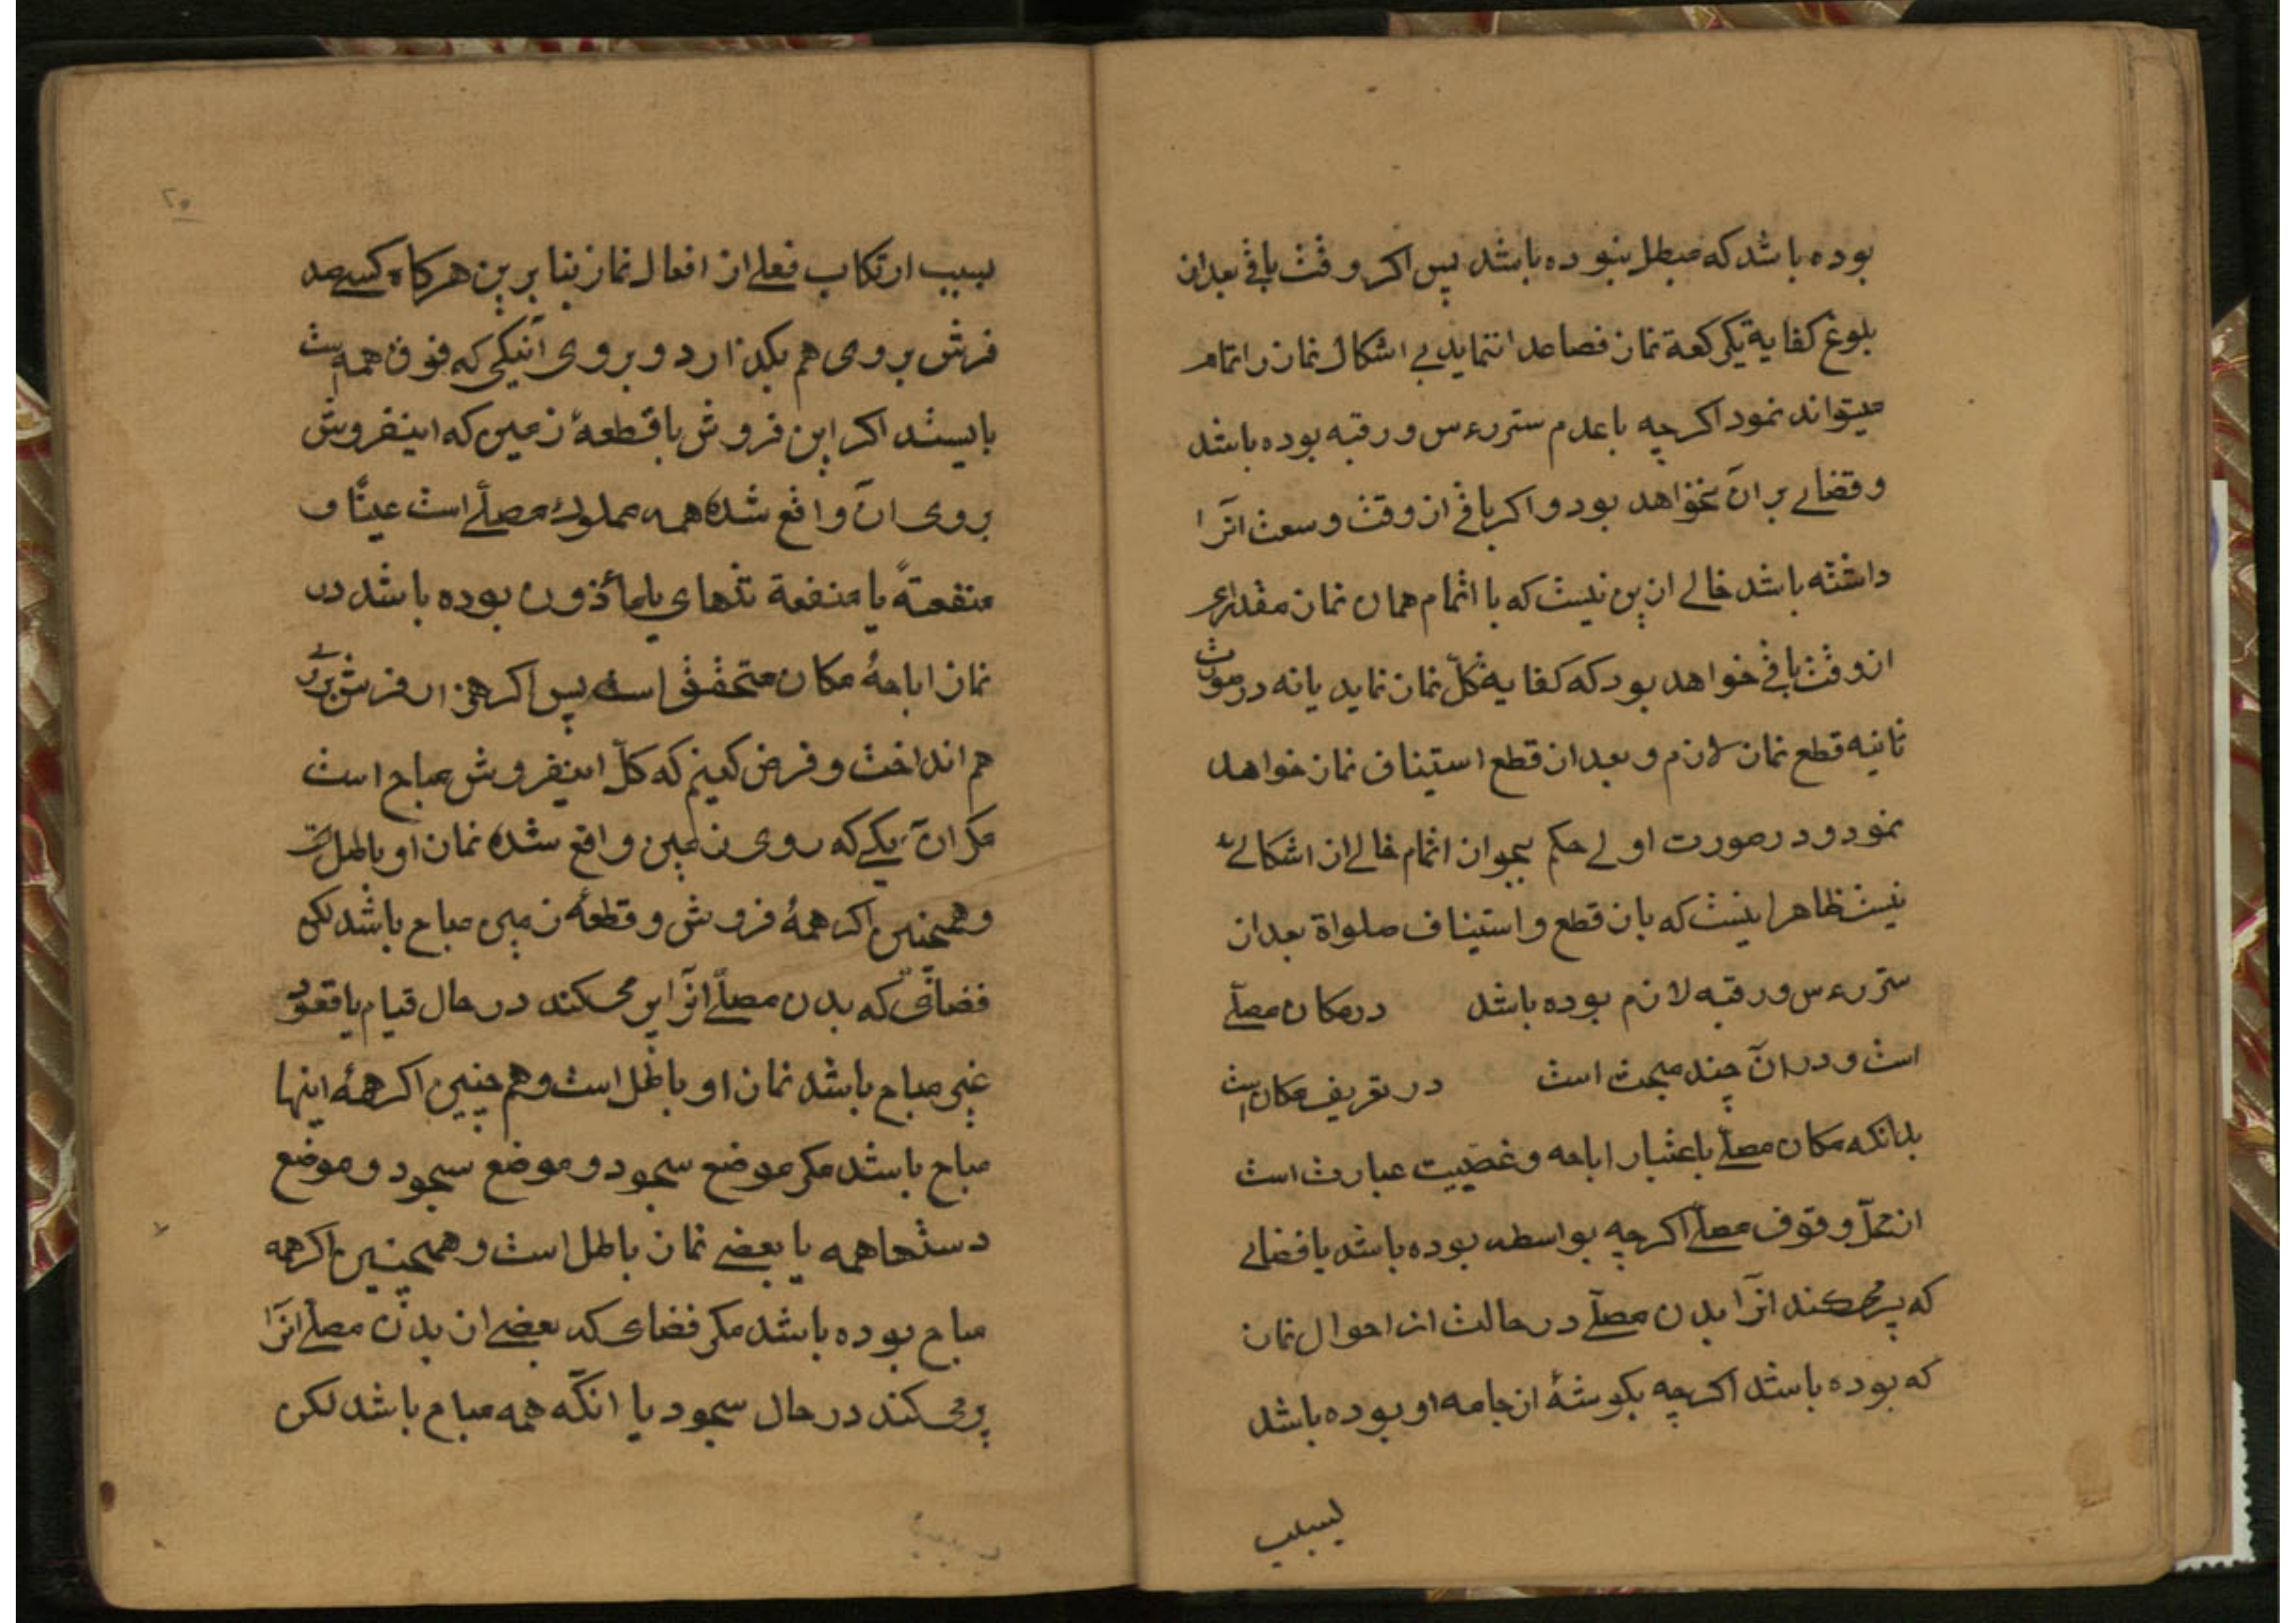 بوده باشد که مبطل بنوده باشد پس اکر وقت باقی بعد از
بلوغ کفایة یکرکعة نماز فصاعدا ننماید بی اشکال نماز را تمام
میتواند نمود اکر چه با عدم ستر رءس و رقبه بوده باشد
و قضائے بر آن نخواهد بود و اکر باقی از وقت وسعت آنرا
داشته باشد خالے از ین نیست که با اتمام همان نماز مقداری
از وقت باقی خواهد بود که کفایه کلّ نماز نماید یا نه در صورت
ثانیه قطع نماز لازم و بعد از قطع استیناف نماز خواهد
نمود و در صورت اولے حکم بجواز اتمام خالے از اشکالے
نیست ظاهرا اینست که بان قطع و استیناف صلواة بعد از
ستر رءس و رقبه لازم بوده باشد در مکان مصلّے
است و در آن چند مبحث است در تعریف مکان است
بدانکه مکان مصلّے باعتبار اباحه و غصبیت عبارت است
از محلّ وقوف مصلّے اکر چه بواسطه بوده باشد یا فضائے
که پر میکند انرا بدن مصلّے در حالت از احوال نماز
که بوده باشد اکر چه بکوشهٔ از جامه او بوده باشد
بسبب
۲۵
بسبب ارتکاب فعلے از افعال نماز بنا بر ین هرکاه کسے صد
فرش بر وی هم بکذارد و بر وی آنیکی که فوق همه است
بایستد اکر این فروش با قطعهٔ زمین که اینفروش
بر وی آن واقع شده همه مملوک مصلّے است عینًا و
منفعتهً یا منفعة تنهای یا مأذون بوده باشد در
نماز اباحهٔ مکان متحقق است پس اکر هزار فرش بر روی
هم انداخت و فرض کنیم که کلّ اینفروش مباح است
مکر آن یکے که روی زمین واقع شده نماز او باطل است
و همچنین اکر همهٔ فروش و قطعهٔ زمین مباح باشد لکن
فضائی که بدن مصلّے انرا پر میکند در حال قیام یا قعود
غیر مباح باشد نماز او باطل است و هم چنین اکر همهٔ اینها
مباح باشد مکر موضع سجود و موضع سجود و موضع
دستها همه یا بعضے نماز باطل است و همچنین اکر همه
مباح بوده باشد مکر فضای که بعضے از بدن مصلّے انرا
پر میکند در حال سجود یا انکه همه مباح باشد لکن